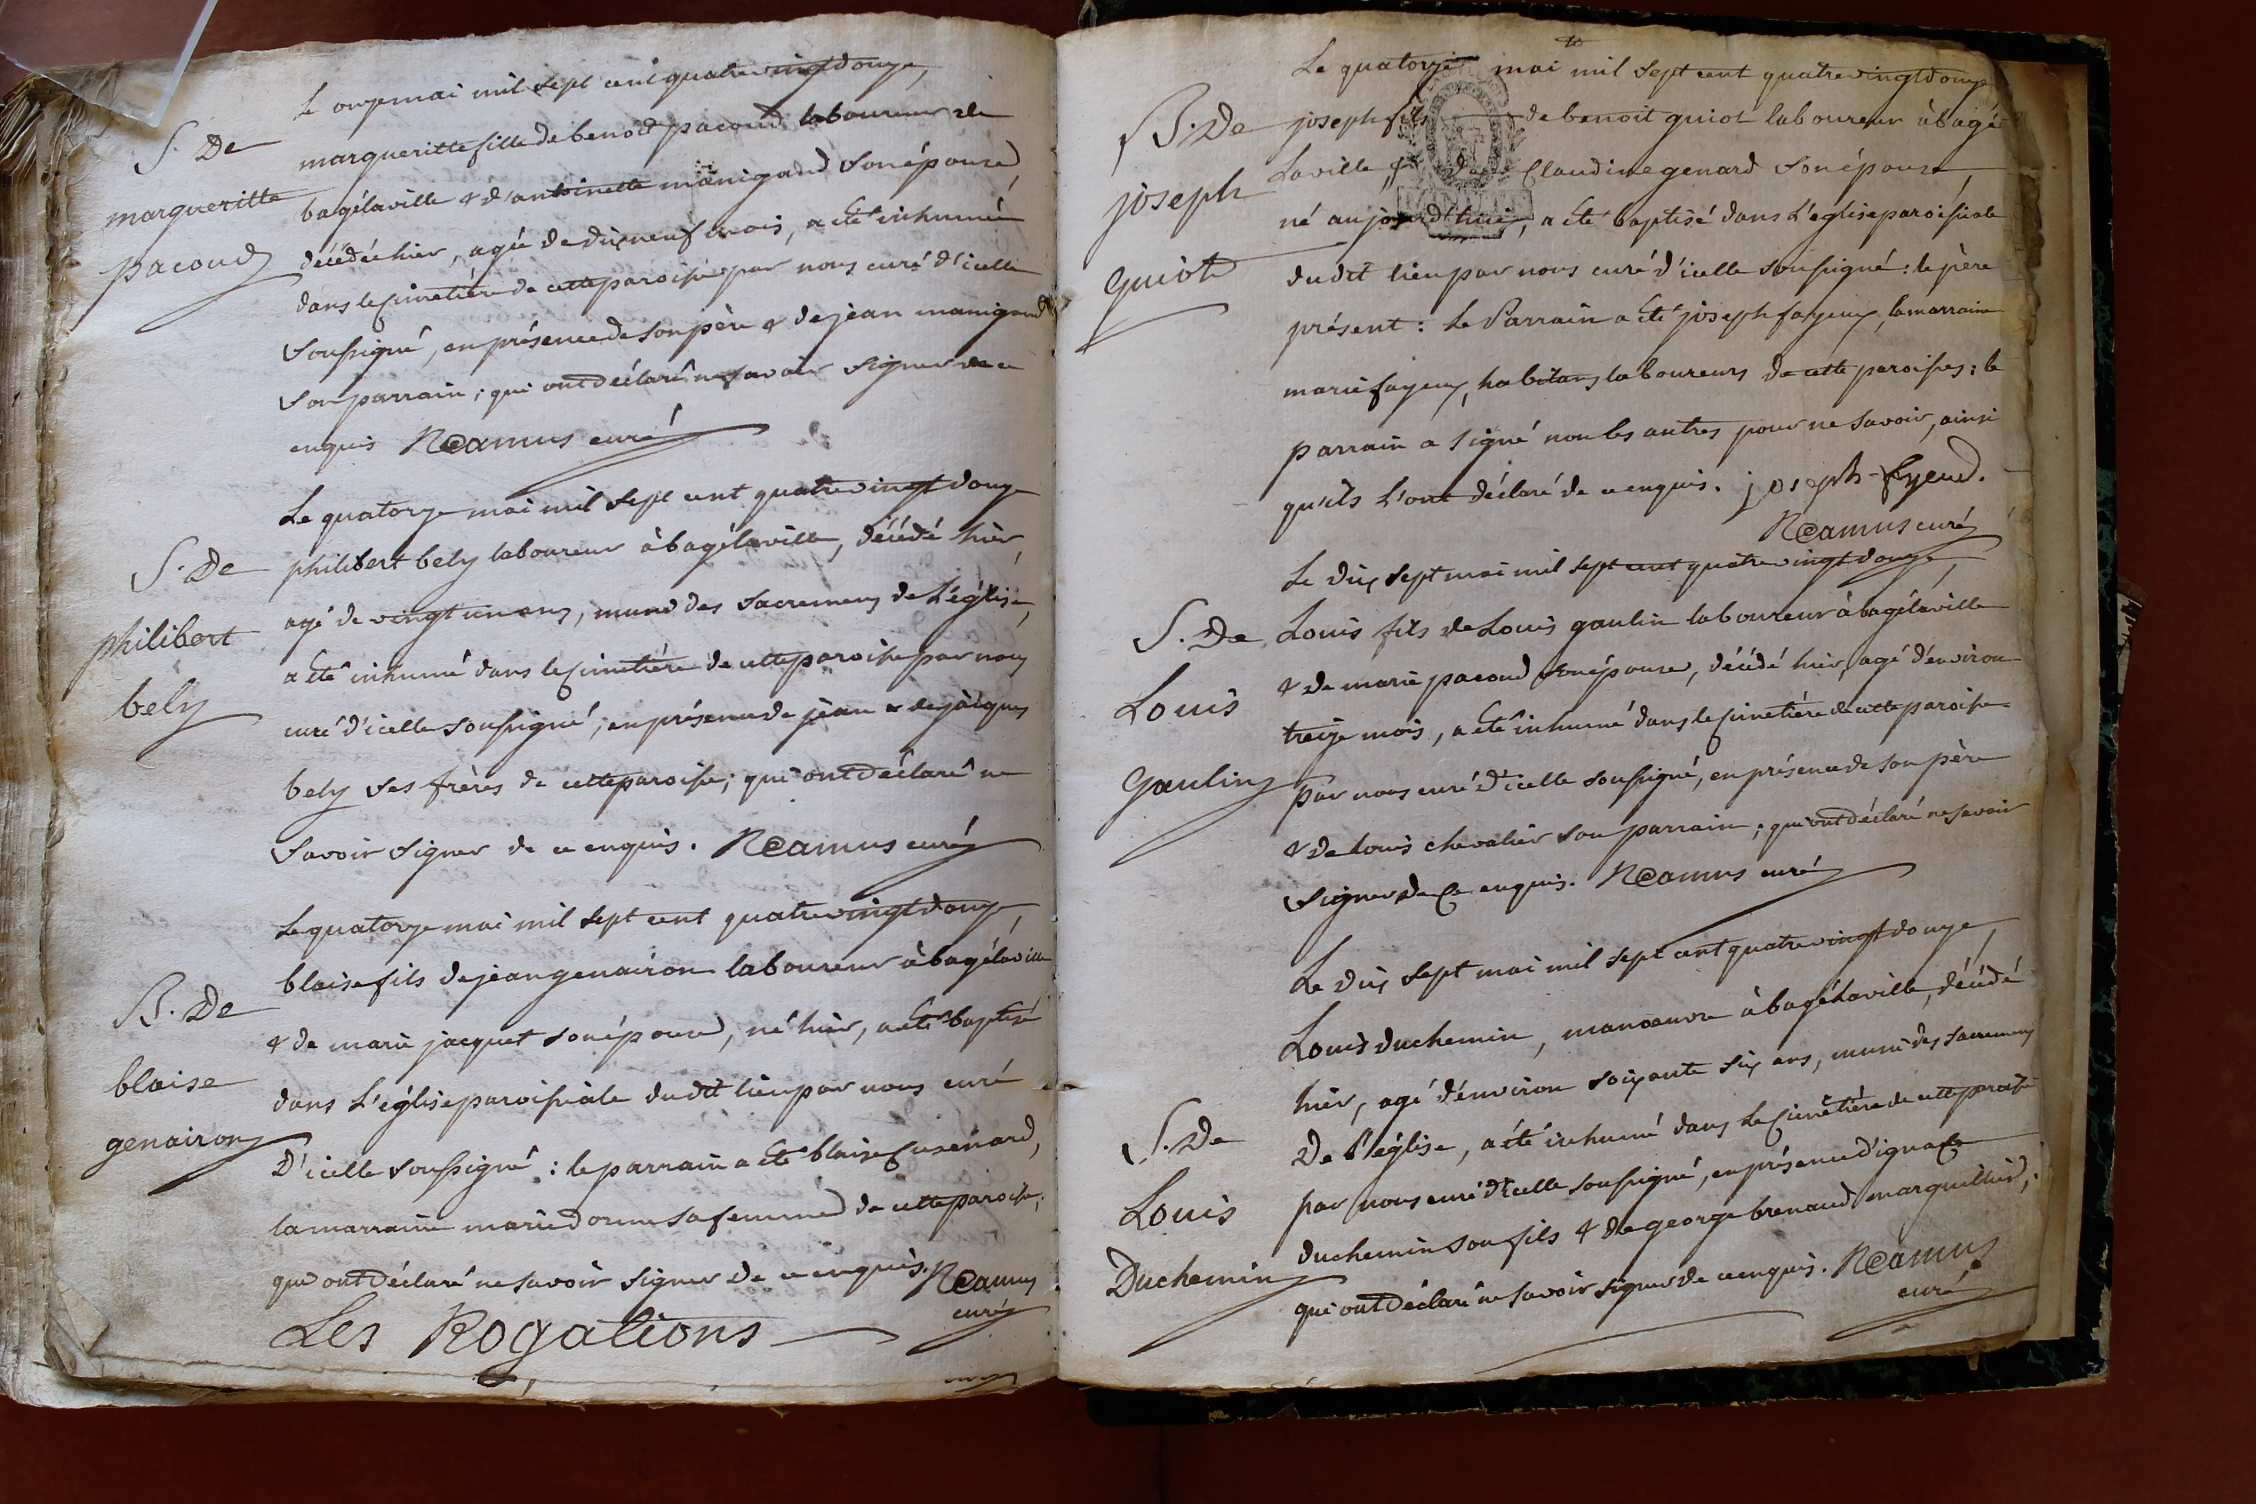 L'onze mai mil sept cent quatrevingtdouze,
S. De
margueritte fille de benoit pacoud laboureur de
margueritte
bagélaville & d'antoinette manigand son épouse,
pacoud
décédée hier, agée de dix neuf mois, a été inhumée
dans le cimetière de cette paroisse par nous curé d'icelle
soussigné, en présence de son père & de jean manigand
son parrain; qui ont déclaré ne savoir signer de ce
enquis NCamus curé
Le quatorze mai mil sept cent quatrevingt douze
S. De
philibert bely laboureur à bagélaville, décédé hier,
philibert
agé de vingt un ans, muni des sacremens de L'église,
bely
a été inhumé dans le cimetière de cette paroisse par nous
curé d'icelle soussigné, en présence de jean & de jàcques
bely ses frères de cette paroisse; qui ont déclaré ne
savoir signer de ce enquis. NCamus curé
Le quatorze mai mil sept cent quatrevingtdouze,
blaise fils de jean genairon laboureur à bagélaville
B. De
& de marie jacquet son épouse, né hier, a été baptisé
blaise
dans L'église paroissiale dudit lieu par nous curé
genairon
D'icelle soussigné : le parrain a été blaise cusenard,
la marraine marie donne sa femme de cette paroisse;
qui ont déclaré ne savoir signer de ce enquis. NCamus
curé
Les Rogations
Le quatorze mai mil sept cent quatrevingtdouze
B. De
joseph fils de benoit guiot laboureur à bagé
joseph
Laville & de Claudine genard son épouse,
né aujourd'hui, a été baptisé dans L'eglise paroissiale
guiot
dudit lieu par nous curé d'icelle soussigné : le père
présent : Le Parrain a été joseph fayeux, la marraine
marie fayeux, habitans laboureurs de cette paroisse; le
parrain a signé non les autres pour ne savoir, ainsi
qu'ils L'ont déclaré de ce enquis. joseph fyeud.
NCamus curé
Le dix sept mai mil sept cent quatrevingtdouze,
S. De
Louis fils de Louis gaulin laboureur à bagélaville
Louis
& de marie pacoud son épouse, décédé hier, agé d'environ
treize mois, a été inhumé dans le cimetière de cette paroisse
Gaulin
par nous curé d'icelle soussigné, en présence de son père
& de Louis chevalier son parrain; qui ont déclaré ne savoir
signer de Ce enquis. NCamus curé
Le dix sept mai mil sept cent quatrevingt douze,
Louis duchemin, manoeuvre à bagélaville, décédé
hier, agé d'environ soixante six ans, muni des sacremens
S. De
De l'église, a été inhumé dans le cimétière de cette paroisse
Louis
par nous curé d'icelle soussigné, en présence d'ignace
Duchemin
duchemin son fils & de george brenaud marguillier,
qui ont déclaré ne savoir signer de ce enquis. NCamus
curé